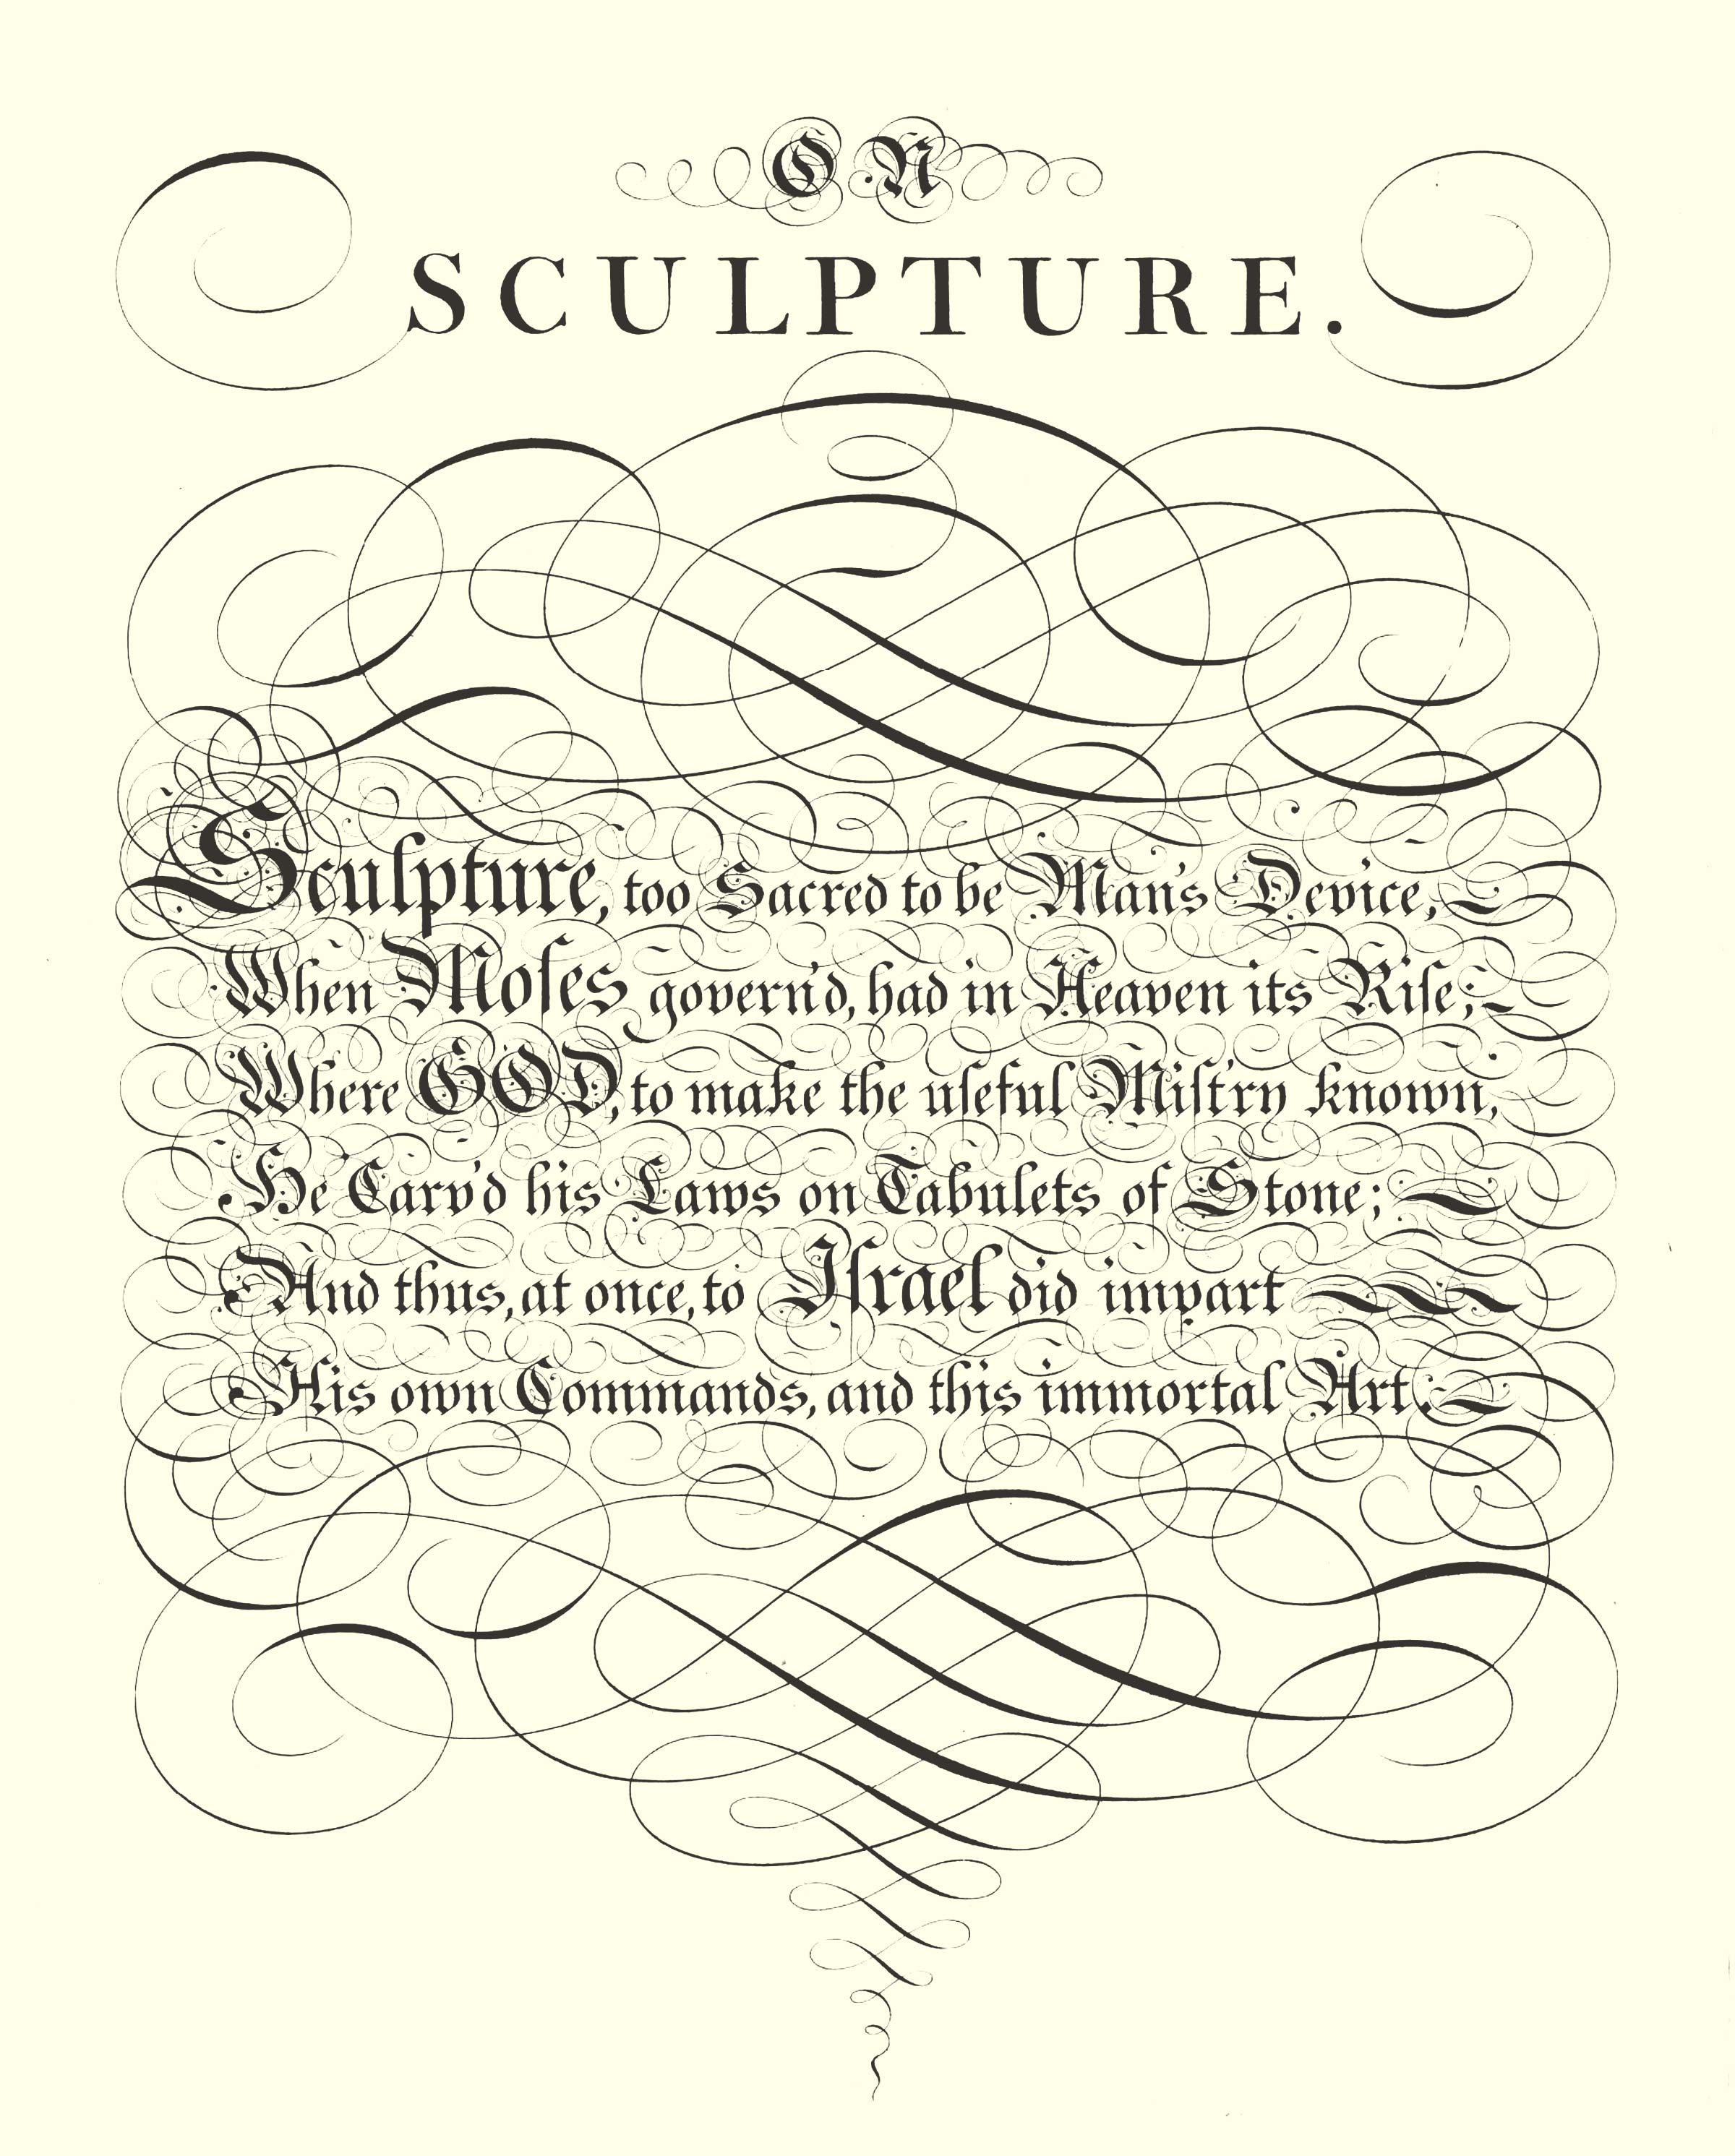 ON
SCULPTURE.
Sculpture, too Sacred to be Man's Device,
When Moses govern'd, had in Heaven its Rise;
Where GOD, to make the useful Mist'ry known,
He Carv'd his Laws on Tabulets of Stone;
And thus, at once, to Israel did impart
His own Commands, and this immortal Art.